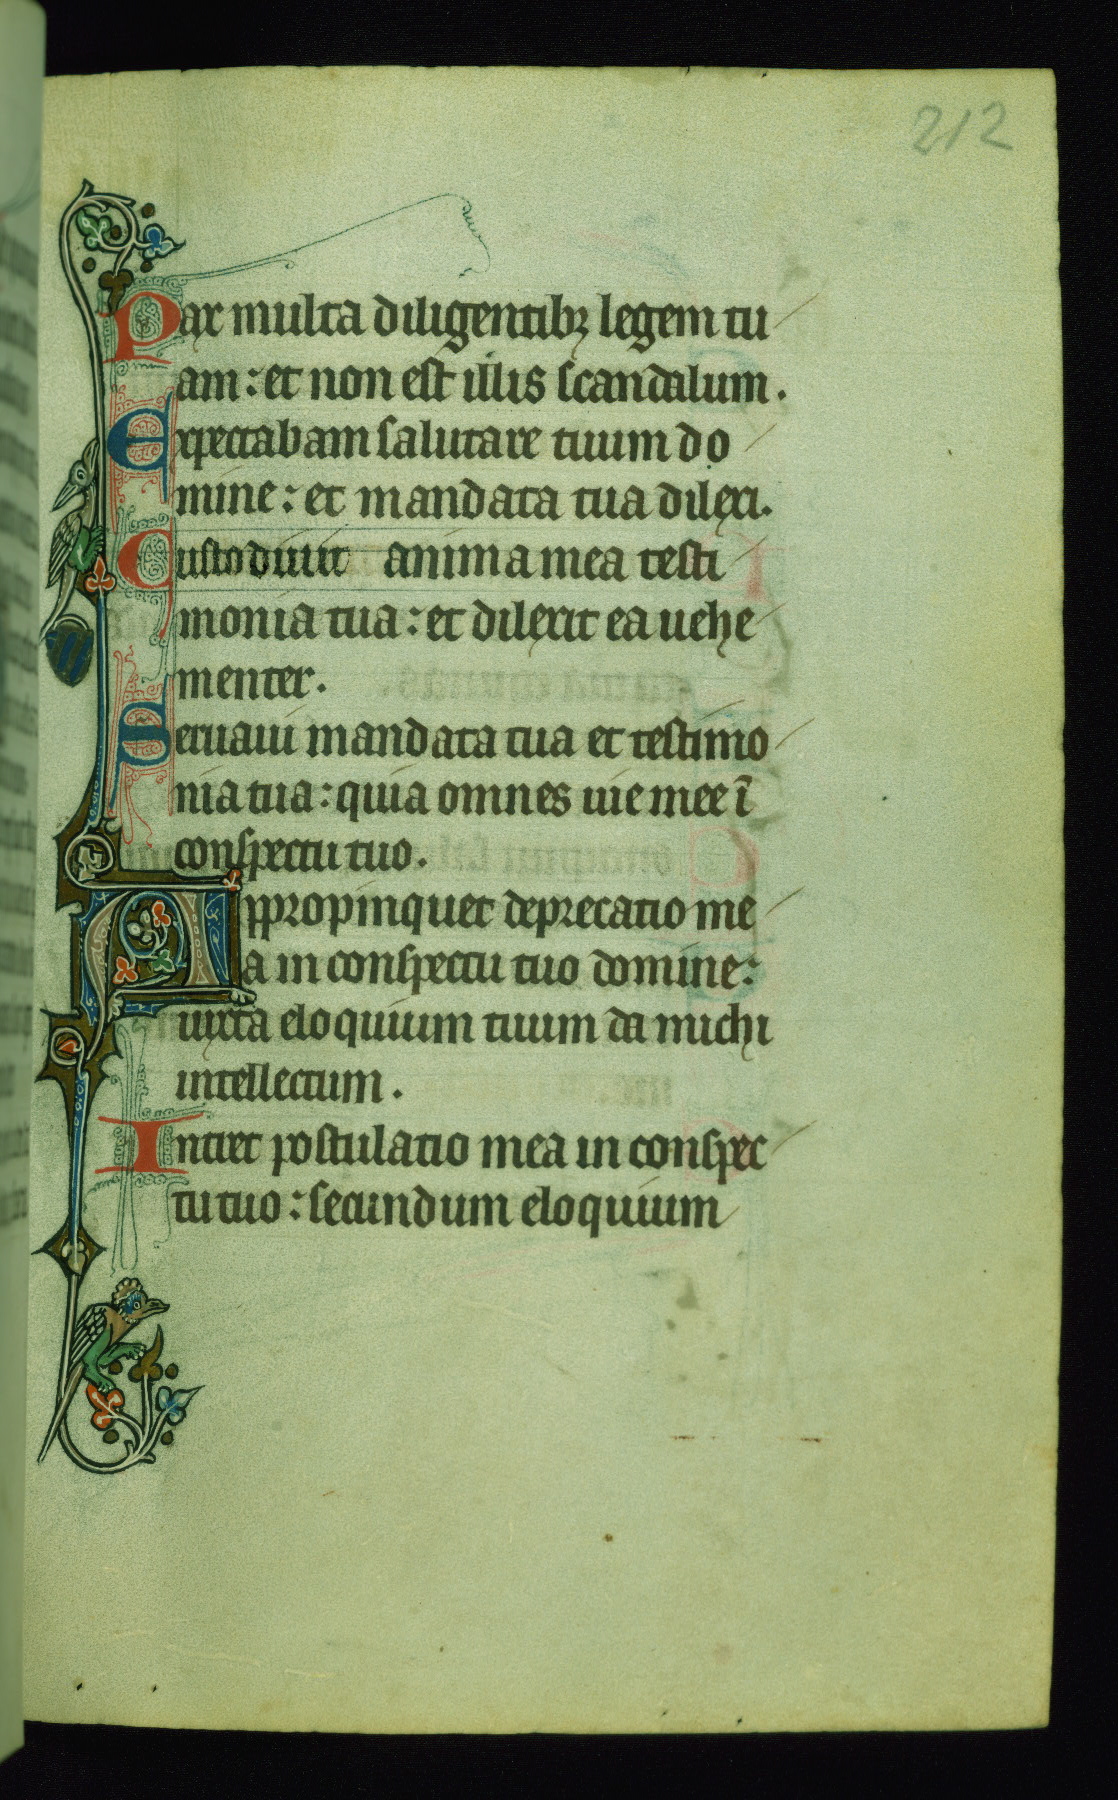 212
Pax multa diligentibꝫ legem tu
am : et non est illis scandalum .
Expectabam salutare tuum do
mine : et mandata tua dilexi .
Custodiuit anima mea testi
monia tua : et dilexit ea uehe
menter .
Seruaui mandata tua et testimo
nia tua : quia omnes uie mee ī
conspectu tuo .
Appropinquet deprecatio me
a in conspectu tuo domine :
iuxta eloquium tuum da michi
intellectum .
Intret postulatio mea in conspec
tu tuo : secundum eloquium